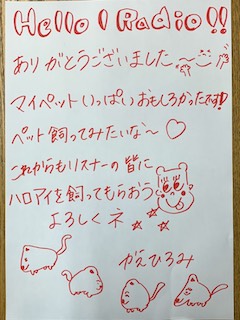 Hello I Radio!!
ありがとうございました〜
マイペットいっぱいおもしろかったです!
ペット飼ってみたいな〜♡
これからもリスナーの皆に
ハロアイを飼ってもらおう
よろしくネ☆☆☆
がえひろみ